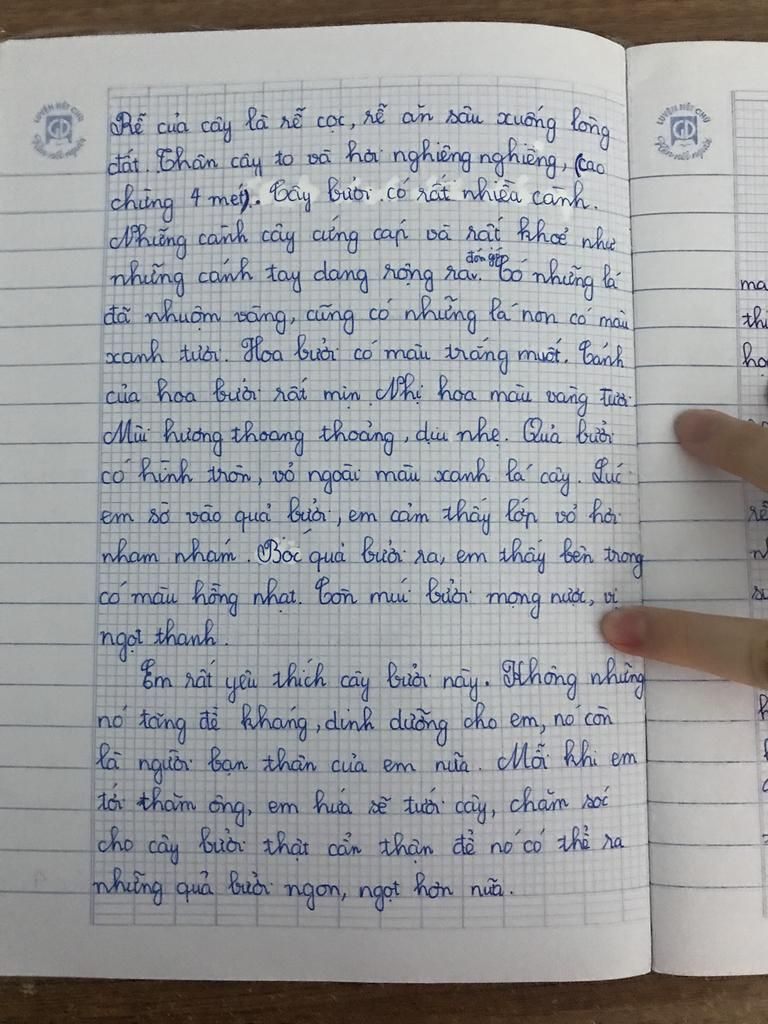 Rễ của cây là rễ cọc, rễ ăn sâu xuống lòng
đất. Thân cây to và hơi nghiêng nghiêng, (cao
chừng 4 mét). Cây bưởi có rất nhiều cành.
Những cành cây cứng cáp và rất khoẻ như
đón gặp
những cánh tay dang rộng ra. Có những lá
đã nhuộm vàng, cũng có những lá non có màu
xanh tươi. Hoa bưởi có màu trắng muốt. Cánh
của hoa bưởi rất mịn. Nhị hoa màu vàng tươi.
Mùi hương thoang thoảng, dịu nhẹ. Quả bưởi
có hình tròn, vỏ ngoài màu xanh lá cây. Lúc
em sờ vào quả bưởi, em cảm thấy lớp vỏ hơi
nham nhám. Bóc quả bưởi ra, em thấy bên trong
có màu hồng nhạt. Còn múi bưởi mọng nước, vị
ngọt thanh.
Em rất yêu thích cây bưởi này. Không những
nó tăng đề kháng, dinh dưỡng cho em, nó còn
là người bạn thân của em nữa. Mỗi khi em
tới thăm ông, em hứa sẽ tưới cây, chăm sóc
cho cây bưởi thật cẩn thận để nó có thể ra
những quả bưởi ngon, ngọt hơn nữa.
LUYỆN NÉT CHỮ
GD
Rèn nết người
LUYỆN NÉT CHỮ
GD
Rèn nết người
ma
thi
rễ